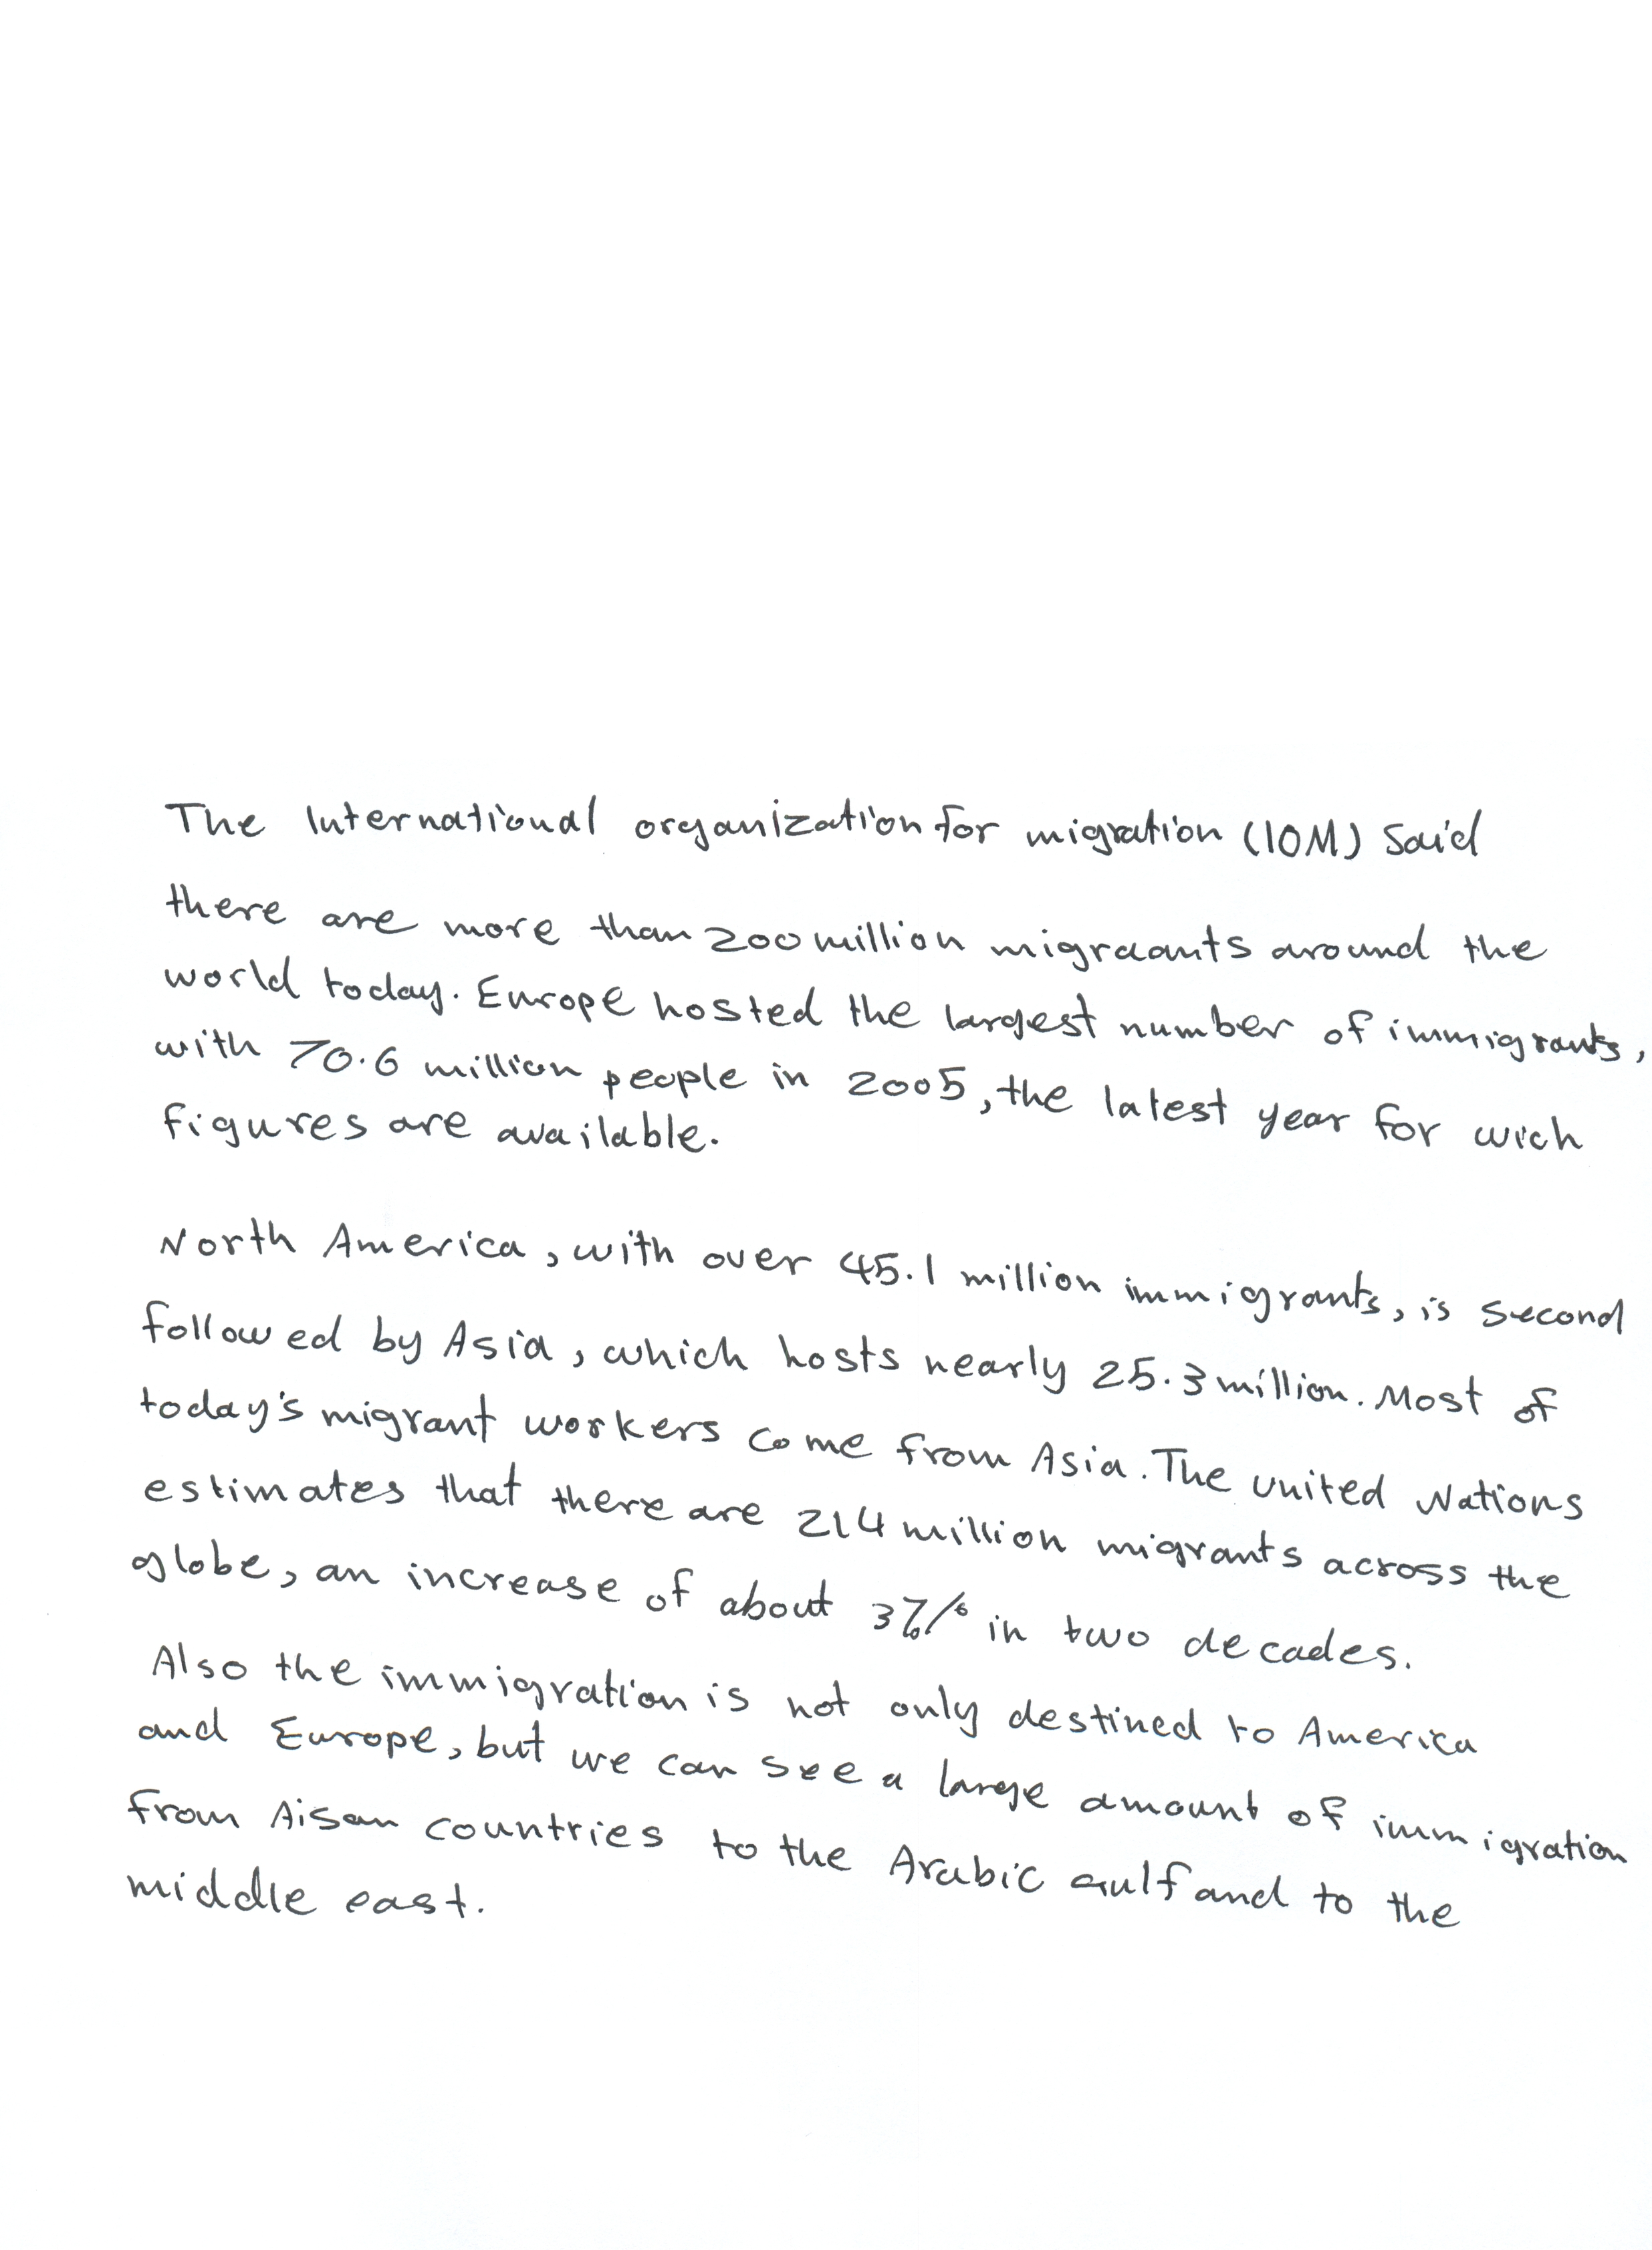 The International organization for migration (IOM) Said
there are more than 200 million migraants around the
world today. Europe hosted the largest number of immigrants,
with 70.6 million people in 2005, the latest year for wich
figures are available.
North America, with over 45.1 million immigrants, is second
followed by Asia, which hosts nearly 25.3 million. Most of
today's migrant workers come from Asia. The united Nations
estimates that there are 214 million migrants across the
globe, an increase of about 37% in two decades.
Also the immigration is not only destined to America
and Europe, but we can see a large amount of immigration
from Aisan countries to the Arabic Gulf and to the
middle east.